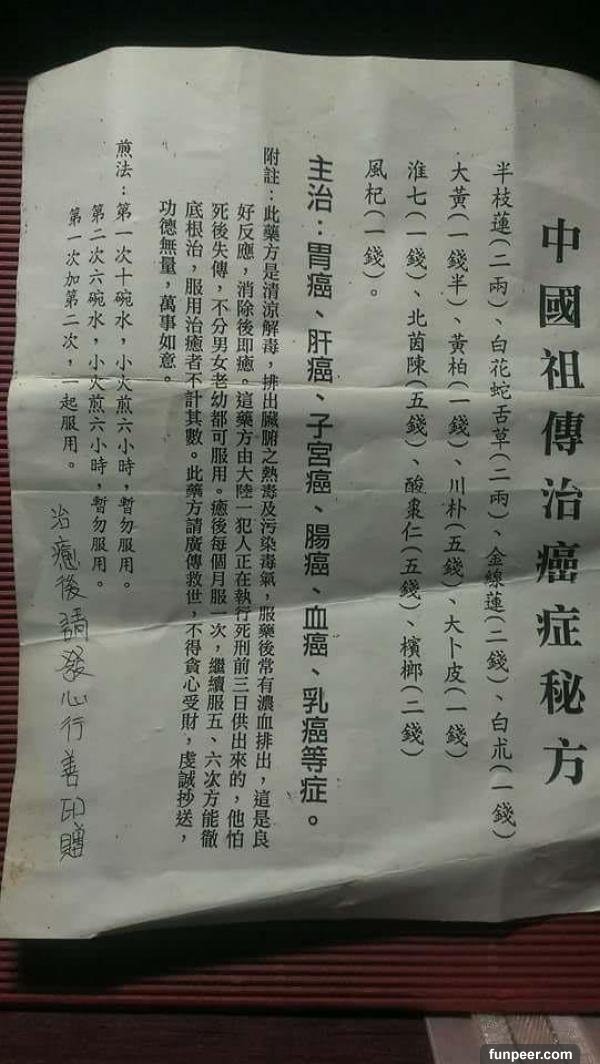 中國祖傳治癌症秘方
半枝蓮(二兩)、白花蛇舌草(二兩)、金線蓮(二錢)、白朮(一錢)
大黃(一錢半)、黃柏(一錢)、川朴(五錢)、大卜皮(一錢)
淮七(一錢)、北茵陳(五錢)、酸棗仁(五錢)、檳榔(二錢)
風杞(一錢)。
主治：胃癌、肝癌、子宮癌、腸癌、血癌、乳癌等症。
附註：此藥方是清涼解毒，排出臟腑之熱毒及污染毒氣，服藥後常有濃血排出，這是良
好反應，消除後即癒。這藥方由大陸一犯人正在執行死刑前三日供出來的，他怕
死後失傳，不分男女老幼都可服用。癒後每個月服一次，繼續服五、六次方能徹
底根治，服用治癒者不計其數。此藥方請廣傳救世，不得貪心受財，虔誠抄送，
功德無量，萬事如意。
煎法：第一次十碗水，小火煎六小時，暫勿服用。
第二次六碗水，小火煎六小時，暫勿服用。
第一次加第二次，一起服用。
治癒後請發心行善印贈
funpeer.com